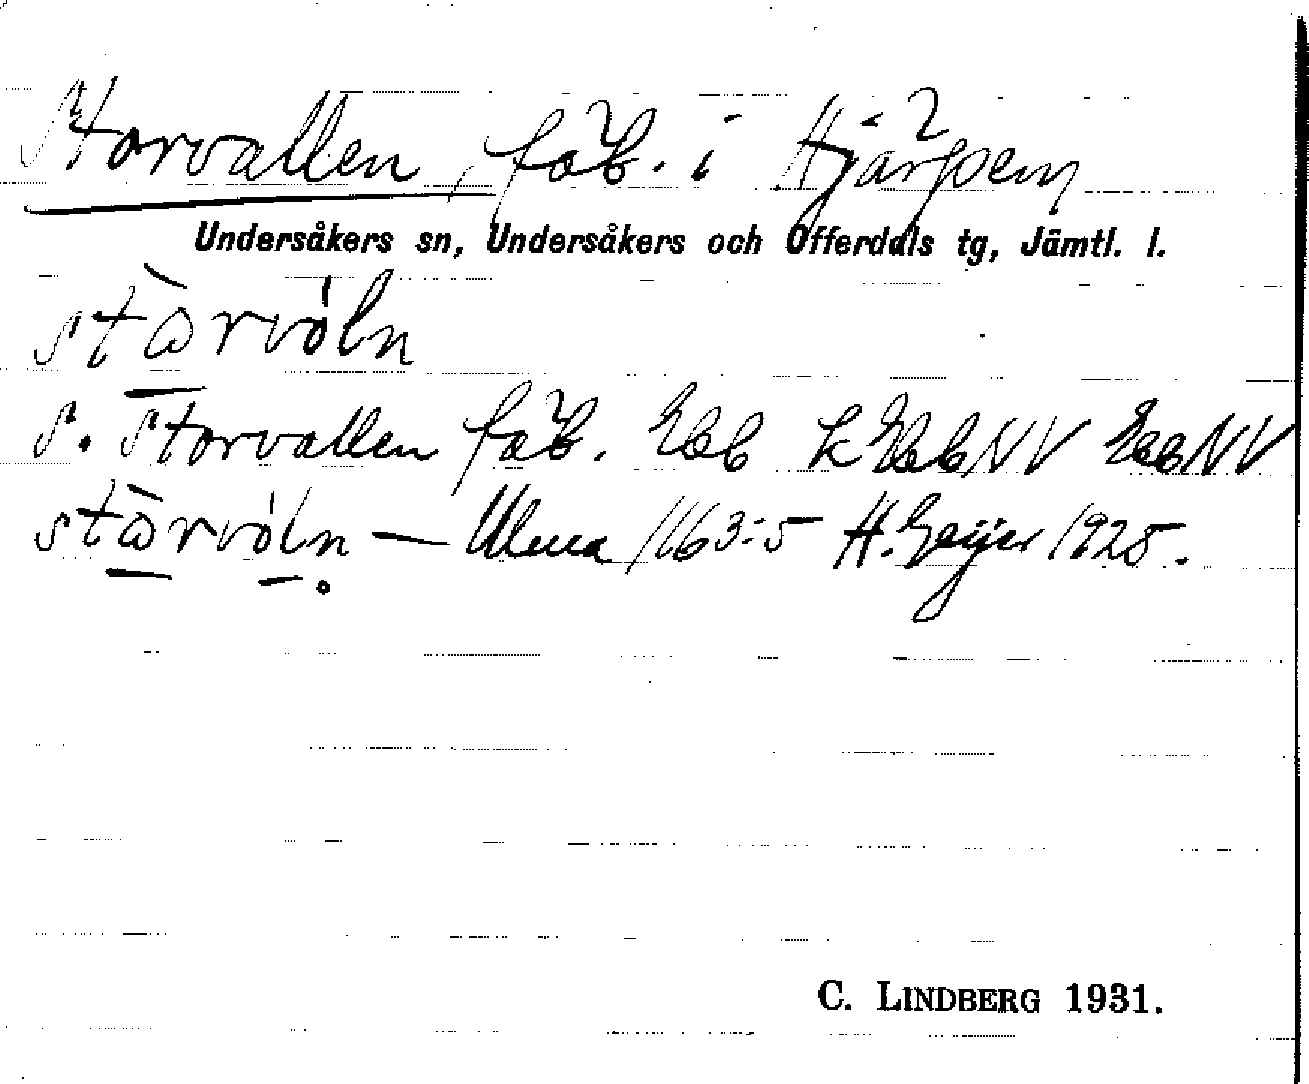 Storvallen, fäb. i Hjärpen
Undersåkers sn, Undersåkers och Offerdals tg, Jämtl. l.
stɷ̀rvóln
S. Storvallen fäb. Ebb LEbbNV EbbNV
stɷ̀rvòln — Ulma 1163:5 H. Geijer 1925.
C. LINDBERG 1931.